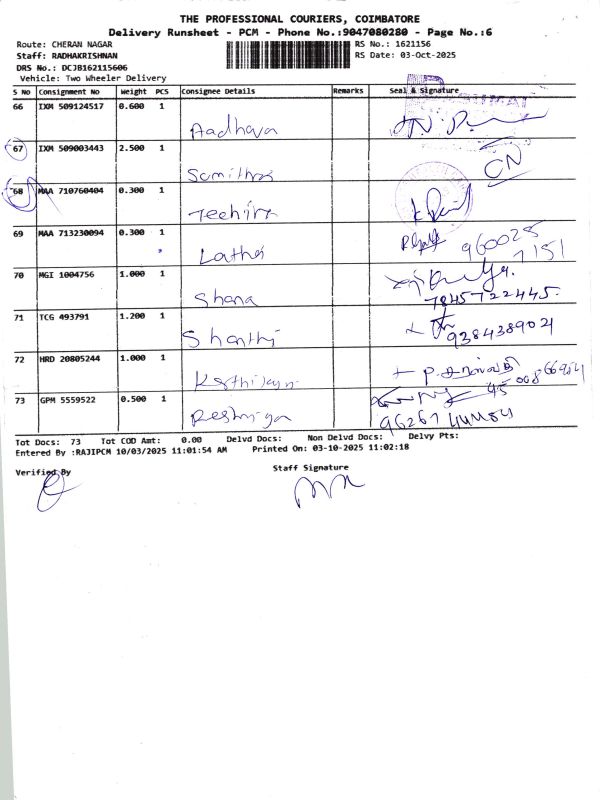 THE PROFESSIONAL COURIERS, COIMBATORE
Delivery Runsheet - PCM - Phone No.:9047080280 - Page No.:6
Route: CHERAN NAGAR RS No.: 1621156
Staff: RADHAKRISHNAN RS Date: 03-Oct-2025
DRS No.: DCJB162115606
Vehicle: Two Wheeler Delivery
S No Consignment No Weight PCS Consignee Details Remarks Seal & Signature
66 IXM 509124517 0.600 1
Aadhava
67 IXM 509003443 2.500 1
Sumithra CN
68 MAA 710760404 0.300 1
69 MAA 713230094 0.300 1
Latha 960025
7151
70 MGI 1004756 1.000 1
Shana 7845722445.
71 TCG 493791 1.200 1
Shanthi 9384389021
72 HRD 20805244 1.000 1
73 GPM 5559522 0.500 1
Tot Docs: 73 Tot COD Amt: 0.00 Delvd Docs: Non Delvd Docs: Delvy Pts:
Entered By :RAJIPCM 10/03/2025 11:01:54 AM Printed On: 03-10-2025 11:02:18
Verified By Staff Signature